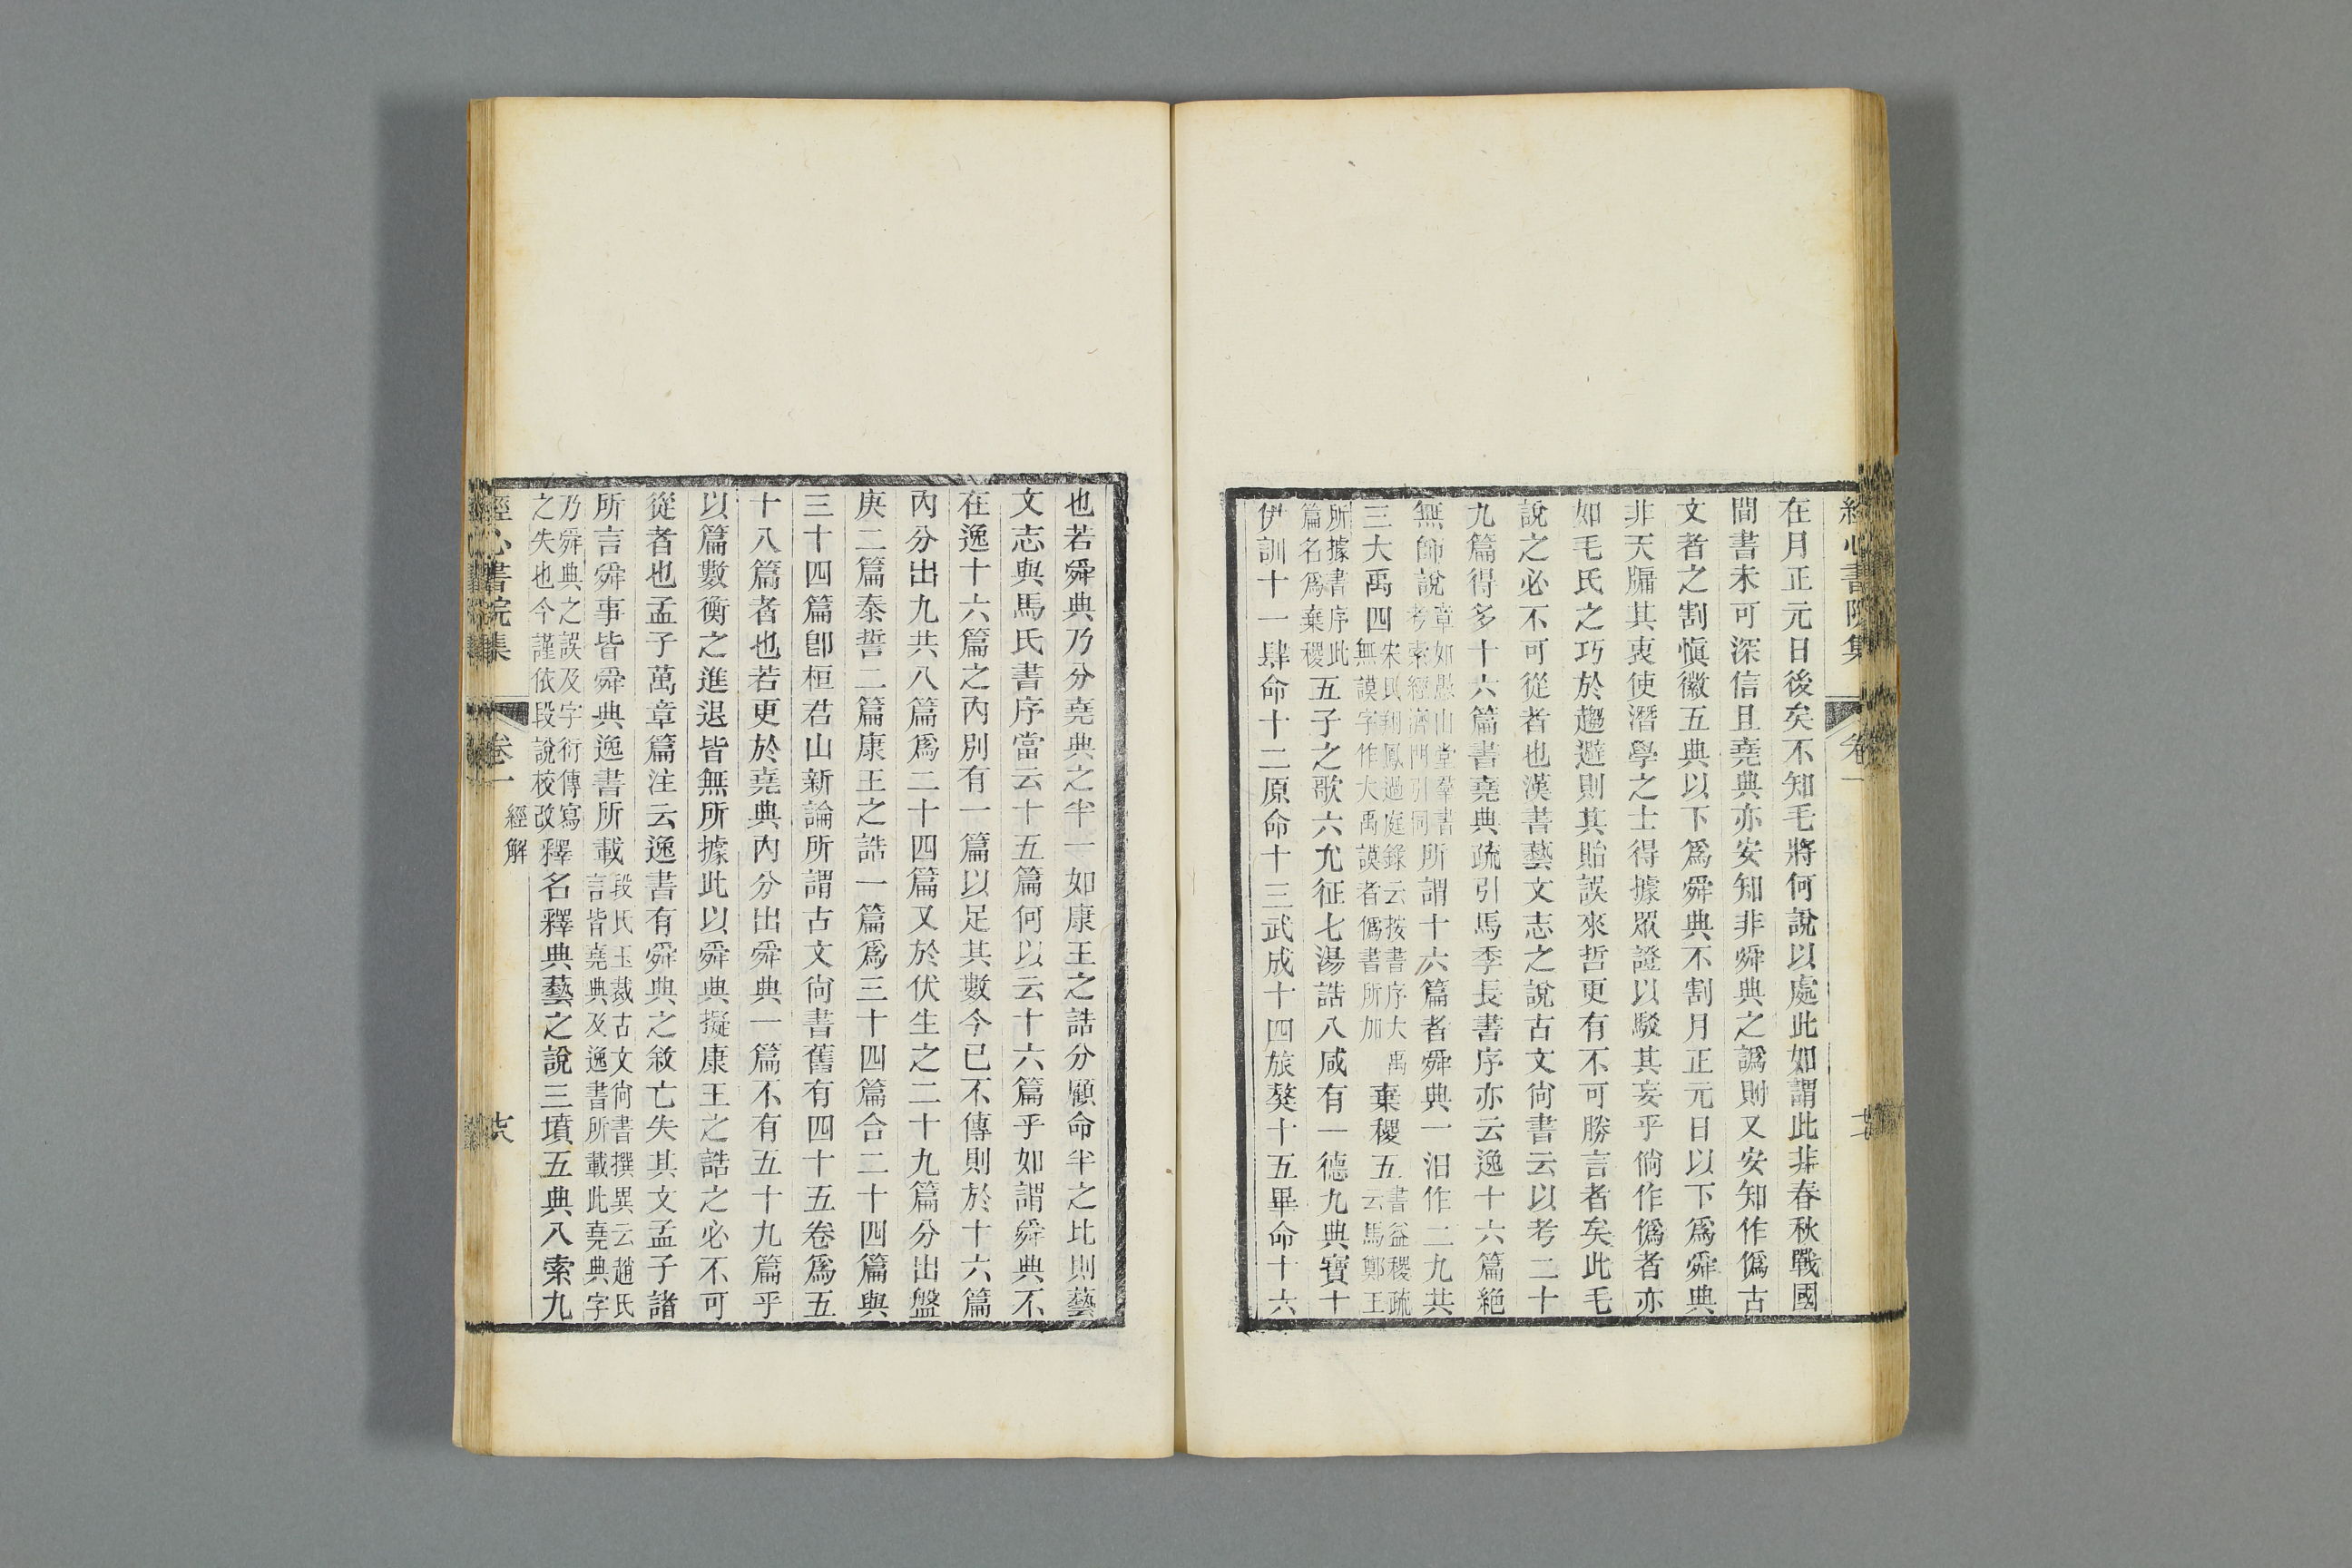 經心書院集 卷一
在月正元日後矣不知毛將何說以處此如謂此非春秋戰國
間書未可深信且堯典亦安知非舜典之譌則又安知作僞古
文者之割愼徽五典以下爲舜典不割月正元日以下爲舜典
非天牖其衷使潛學之士得據眾證以駁其妄乎倘作僞者亦
如毛氏之巧於趨避則其貽誤來哲更有不可勝言者矣此毛
說之必不可從者也漢書藝文志之說古文尙書云以考二十
九篇得多十六篇書堯典疏引馬季長書序亦云逸十六篇絶
無師說章如愚山堂羣書考索經濟門引同所謂十六篇者舜典一汨作二九共
三大禹四宋氏翔鳳過庭錄云按書序大禹無謨字作大禹謨者僞書所加棄稷五書益稷疏云馬鄭王
所據書序此篇名爲棄稷五子之歌六允征七湯誥八咸有一德九典寶十
伊訓十一肆命十二原命十三武成十四旅獒十五畢命十六
也若舜典乃分堯典之半一如康王之誥分顧命半之比則藝
文志與馬氏書序當云十五篇何以云十六篇乎如謂舜典不
在逸十六篇之內別有一篇以足其數今已不傳則於十六篇
內分出九共八篇爲二十四篇又於伏生之二十九篇分出盤
庚二篇泰誓二篇康王之誥一篇爲三十四篇合二十四篇與
三十四篇卽桓君山新論所謂古文尙書舊有四十五卷爲五
十八篇者也若更於堯典內分出舜典一篇不有五十九篇乎
以篇數衡之進退皆無所據此以舜典擬康王之誥之必不可
從者也孟子萬章篇注云逸書有舜典之敘亡失其文孟子諸
所言舜事皆舜典逸書所載段氏玉裁古文尙書撰異云趙氏言皆堯典及逸書所載此堯典字
乃舜典之誤及字衍傳寫之失也今謹依段說校改釋名釋典藝之說三墳五典八索九
經心書院集 卷一 經解